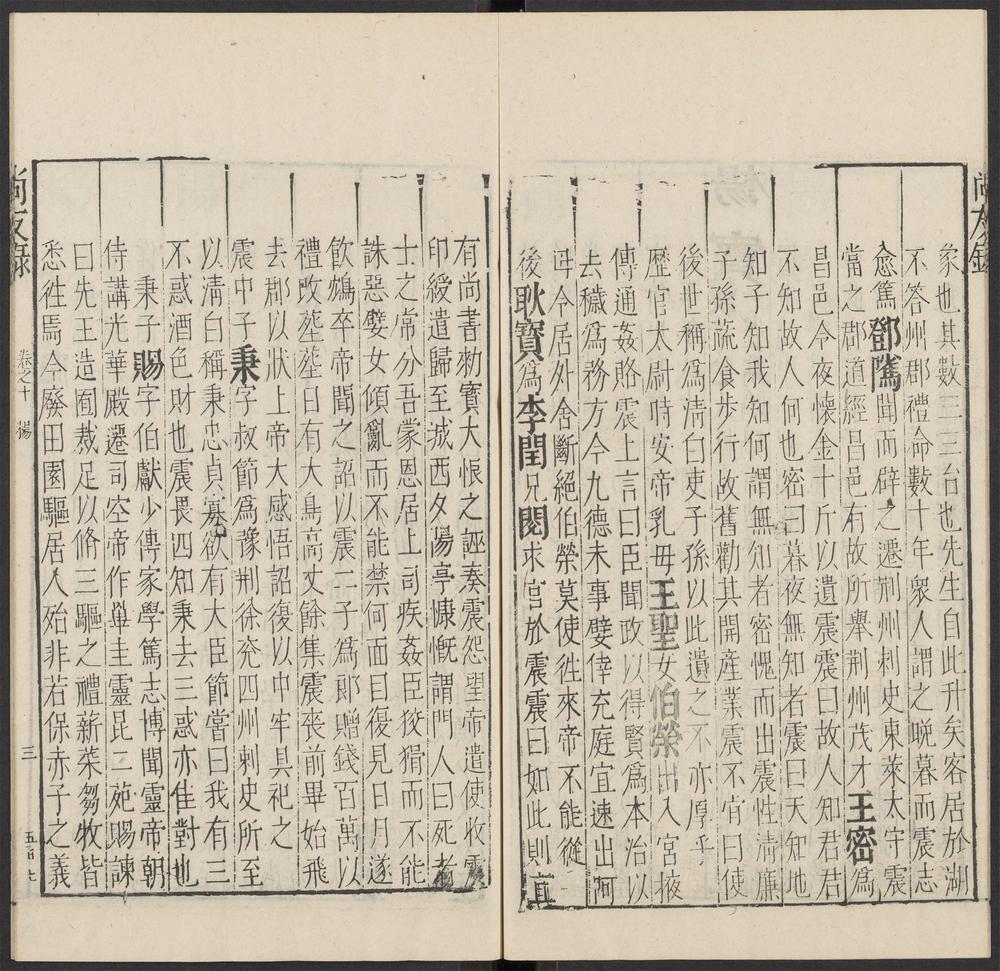 象也其數三三台也先生自此升矣客居於湖
不答州郡禮命數十年眾人謂之晚暮而震志
愈篤鄧隲聞而辟之遷荆州刺史東萊太守震
當之郡道經昌邑有故所舉荆州茂才王密爲
昌邑令夜懷金十斤以遺震震曰故人知君君
不知故人何也密曰暮夜無知者震曰天知地
知子知我知何謂無知者密愧而出震性清廉
子孫蔬食步行故舊勸其開產業震不肯曰使
後世稱爲清白吏子孫以此遺之不亦厚乎
歷官太尉時安帝乳母王聖女伯榮出入宮掖
傳通姦賂震上言曰臣聞政以得賢爲本治以
去穢爲務方今九德未事嬖倖充庭宜速出阿
毋令居外舍斷絕伯榮莫使徃來帝不能從
後耿寶爲李閏兄閎求官於震震曰如此則眞
有尚書勑寶大恨之誣奏震怨望帝遣使收震
印綬遣歸至城西夕陽亭慷慨謂門人曰死者
士之常分吾蒙恩居上司疾姦臣狡猾而不能
誅惡嬖女傾亂而不能禁何面目復見日月遂
飲鴆卒帝聞之詔以震二子爲郎贈錢百萬以
禮改塟塟日有大鳥高丈餘集震喪前畢始飛
去郡以狀上帝大感悟詔復以中牢具祀之
震中子秉字叔節爲豫荆徐兖四州刺史所至
以清白稱秉忠貞寡欲有大臣節當曰我有三
不惑酒色財也震畏四知秉去三惑亦佳對也
秉子賜字伯獻少傳家學篤志博聞靈帝朝
侍講光華殿遷司空帝作畢圭靈昆二苑賜諫
曰先王造囿裁足以脩三驅之禮薪菜芻牧皆
悉徃焉今廢田園驅居人殆非若保赤子之義
尚友錄
卷之十
楊
三